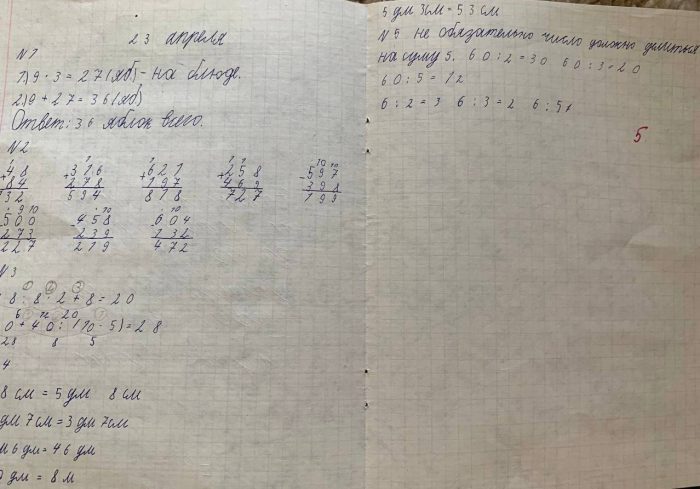 23 апреля
N 1
1) 9 · 3 = 27 (яб) - на блюде.
2) 9 + 27 = 36 (яб)
Ответ: 36 яблок всего.
N 2
+48 +316 +621 +258 -597
84 278 197 469 398
132 594 818 727 199
-500 -458 -604
273 239 132
227 219 472
N 3
8 : 8 · 2 + 8 = 20
0 + 40 : (10 - 5) = 28
28 8 5
4
8 см = 5 дм 8 см
дм 7 см = 3 дм 7 см
м 6 дм = 46 дм
0 дм = 8 м
5 дм 3 см = 53 см
N 5 не обязательно число должно делиться
на суму 5. 60 : 2 = 30 60 : 3 = 20
60 : 5 = 12
6 : 2 = 3 6 : 3 = 2 6 : 5
5